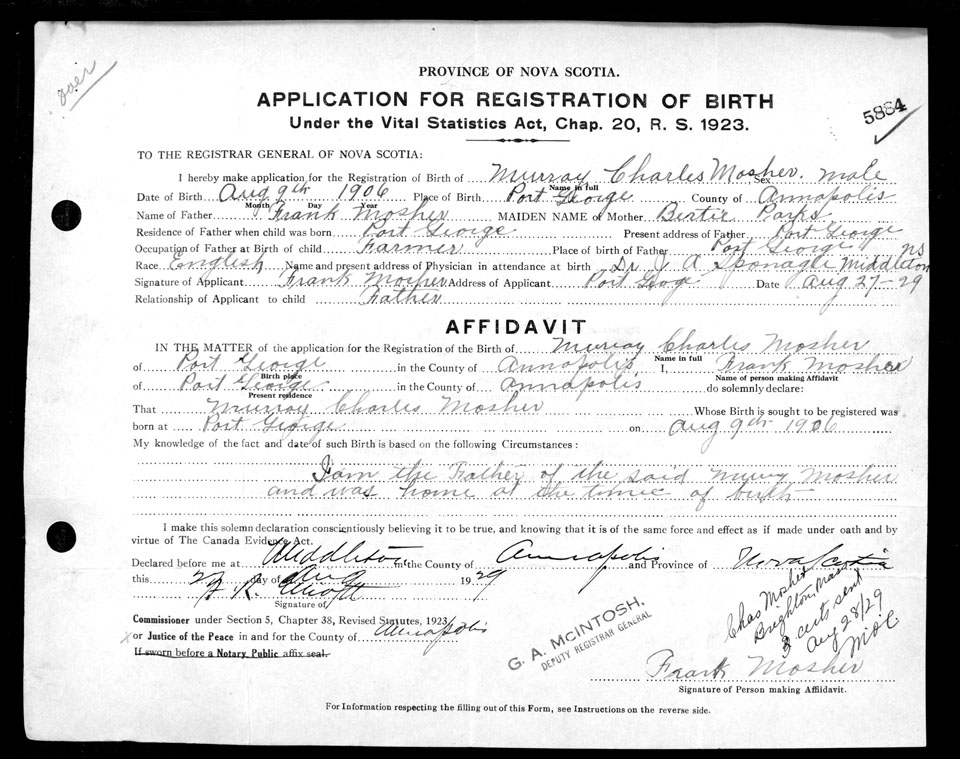 over
PROVINCE OF NOVA SCOTIA.
APPLICATION FOR REGISTRATION OF BIRTH
5884
Under the Vital Statistics Act, Chap. 20, R. S. 1923.
TO THE REGISTRAR GENERAL OF NOVA SCOTIA:
I hereby make application for the Registration of Birth of Murray Charles Mosher. Sex male
Name in full
Date of Birth Aug 9th 1906 Place of Birth Port George County of Annapolis
Month Day Year
Name of Father Frank Mosher MAIDEN NAME of Mother Bertie Parks
Residence of Father when child was born Port George Present address of Father Port George
Occupation of Father at Birth of child Farmer Place of birth of Father Port George NS
Race English Name and present address of Physician in attendance at birth Dr J A Sponagle Middleton
Signature of Applicant Frank Mosher Address of Applicant Port George Date Aug 27-29
Relationship of Applicant to child Father
AFFIDAVIT
IN THE MATTER of the application for the Registration of the Birth of Murray Charles Mosher
Name in full
of Port George in the County of Annapolis, I, Frank Mosher
Birth place Name of person making Affidavit
of Port George in the County of Annapolis do solemnly declare:
Present residence
That Murray Charles Mosher Whose Birth is sought to be registered was
born at Port George on Aug 9th 1906
My knowledge of the fact and date of such Birth is based on the following Circumstances:
I am the Father of the said Mury Mosher
and was home at the time of birth
I make this solemn declaration conscientiously believing it to be true, and knowing that it is of the same force and effect as if made under oath and by
virtue of The Canada Evidence Act.
Declared before me at Middleton in the County of Annapolis and Province of Nova Scotia
this 27 day of Aug 1929
Signature of
Commissioner under Section 5, Chapter 38, Revised Statutes, 1923
x or Justice of the Peace in and for the County of Annapolis
If sworn before a Notary Public affix seal.
G. A. McINTOSH,
DEPUTY REGISTRAR GENERAL
Chas Mosher
Brighton Mass
3 certs sent
Aug 28/29
Frank Mosher
Signature of Person making Affidavit.
For Information respecting the filling out of this Form, see Instructions on the reverse side.